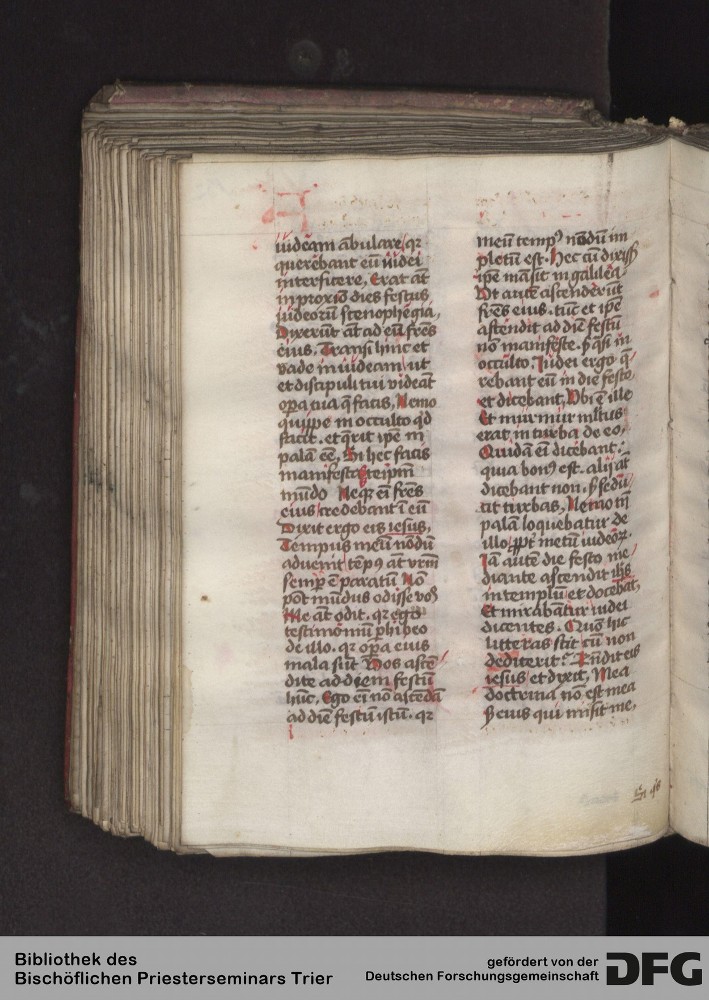 iudeam ābulare, qr
querebant eū iudei
interficere, Erat āt
in proxīo dies festus
iudeorū scenophegia,
Dixerūt āt ad eū frēs
eius, Transi hinc et
vade in iudeam, ut
et discipuli tui videāt
opa tua q̄ facis, Nemo
quippe in occulto qd
facit. et q̄rit ipē in
palā eē, Si hec facis
manifesta teipm̄
mūdo Neqz eī frēs
eius credebant ī eū
Dixit ergo eis iesus,
Tempus meū nōdū
advenit tēpꝯ āt vr̄m
semp̄ ē paratū Nō
pōt mūdus odisse vos
Me āt odit. qr ego
testimoniū phibeo
de illo. qr opa eius
mala sūt Vos ascē
dite ad diem festū
hūc, Ego eī nō ascēdā
ad diē festū istū. qr
meū tempꝯ nōdū im
pletū est. Hec cū dixiss
ipē māsit in galilea.
Ut autē ascenderūt
frēs eius. tūc et ipē
ascendit ad diē festū
nō manifeste. s; q̄si in
occulto. Iudei ergo q̄
rebant eū in die festo
et dicebant, Ubi ē ille
Et murmur mltus
erat in turba de eo,
Quidā eī dicebant:
quia bonꝯ est. alij āt
dicebant non. s; sedu
cit turbas, Nemo tn̄
palā loquebatur de
illo. ppt̄ metū iudeoꝝ.
Iā autē die festo me
diante ascendit ihs
in templū et docebat,
Et mirabātur iudei
dicentes. Quō hic
litteras scit cū non
didicerit? Rn̄dit eis
iesus et dixit, Mea
doctrina nō est mea
s; eius qui misit me,
Bibliothek des
Bischöflichen Priesterseminars Trier
gefördert von der
Deutschen Forschungsgemeinschaft
DFG